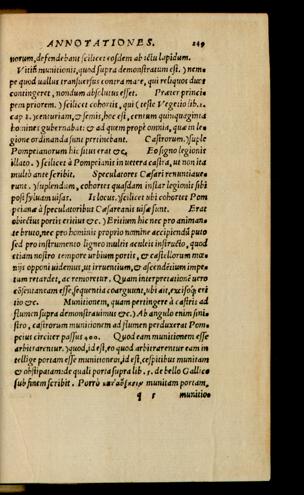 ANNOTATIONES. 249
norum, defendebant scilicet eosdem ab ictu lapidum.
Vitiũ munitionis, quod supra demonstratum est. ) nem⸗
pe quod uallus transuersus contra mare, qui reliquos duos
contingeret, nondum absolutus esset. Præter princi
pem priorem. ) scilicet cohortis, qui (teste Vegetio lib. 2.
cap 8.) centuriam, & semis, hoc est, centum quinquaginta
homines gubernabat: & ad quem propè omnia, quæ in le⸗
gione ordinanda sunt pertinebant. Castrorum. ) suple
Pompeianorum hic situs erat &c. Eo signo legionis
illato. ) scilicet à Pompeianis in uetera castra, ut non ita
multò ante scribit. Speculatores Cæsari renuntiaue
runt. ) suplendum, cohortes quasdam instar legionis sibi
post syluam uisas. Is locus. ) scilicet ubi cohortes Pom
peianæ à speculatoribus Cæsareanis uisæ sunt. Erat
obiectus portis ericius &c. ) Ericium hic nec pro animan
te bruto, nec pro hominis proprio nomine accipiendũ puto
sed pro instrumento ligneo multis aculeis instructo, quod
etiam nostro tempore urbium portis, & castellorum mœ⸗
nijs opponi uidemus, ut irruentium, & ascendẽtium impe⸗
tum retardet, ac remoretur. Quam interpretationẽ uero
cõsentaneam esse, sequentia coarguunt, ubi ait, excisoq; eri
tio &c. Munitionem, quam pertingere à castris ad
flumen supra demonstrauimus &c. ) Ab angulo enim sini⸗
stro, castrorum munitionem ad flumen perduxerat Pom⸗
peius circiter passus 400. Quod eam munitionem esse
arbitrarentur. ) quod, id est, eo quod arbitrarentur eam in
tellige portam esse munitionis, id est, cespitibus munitam
& obstipatam: de quali porta supra lib. 5. de bello Gallico
sub finem scribit. Porrò munitam portam,
q 5 munitio⸗